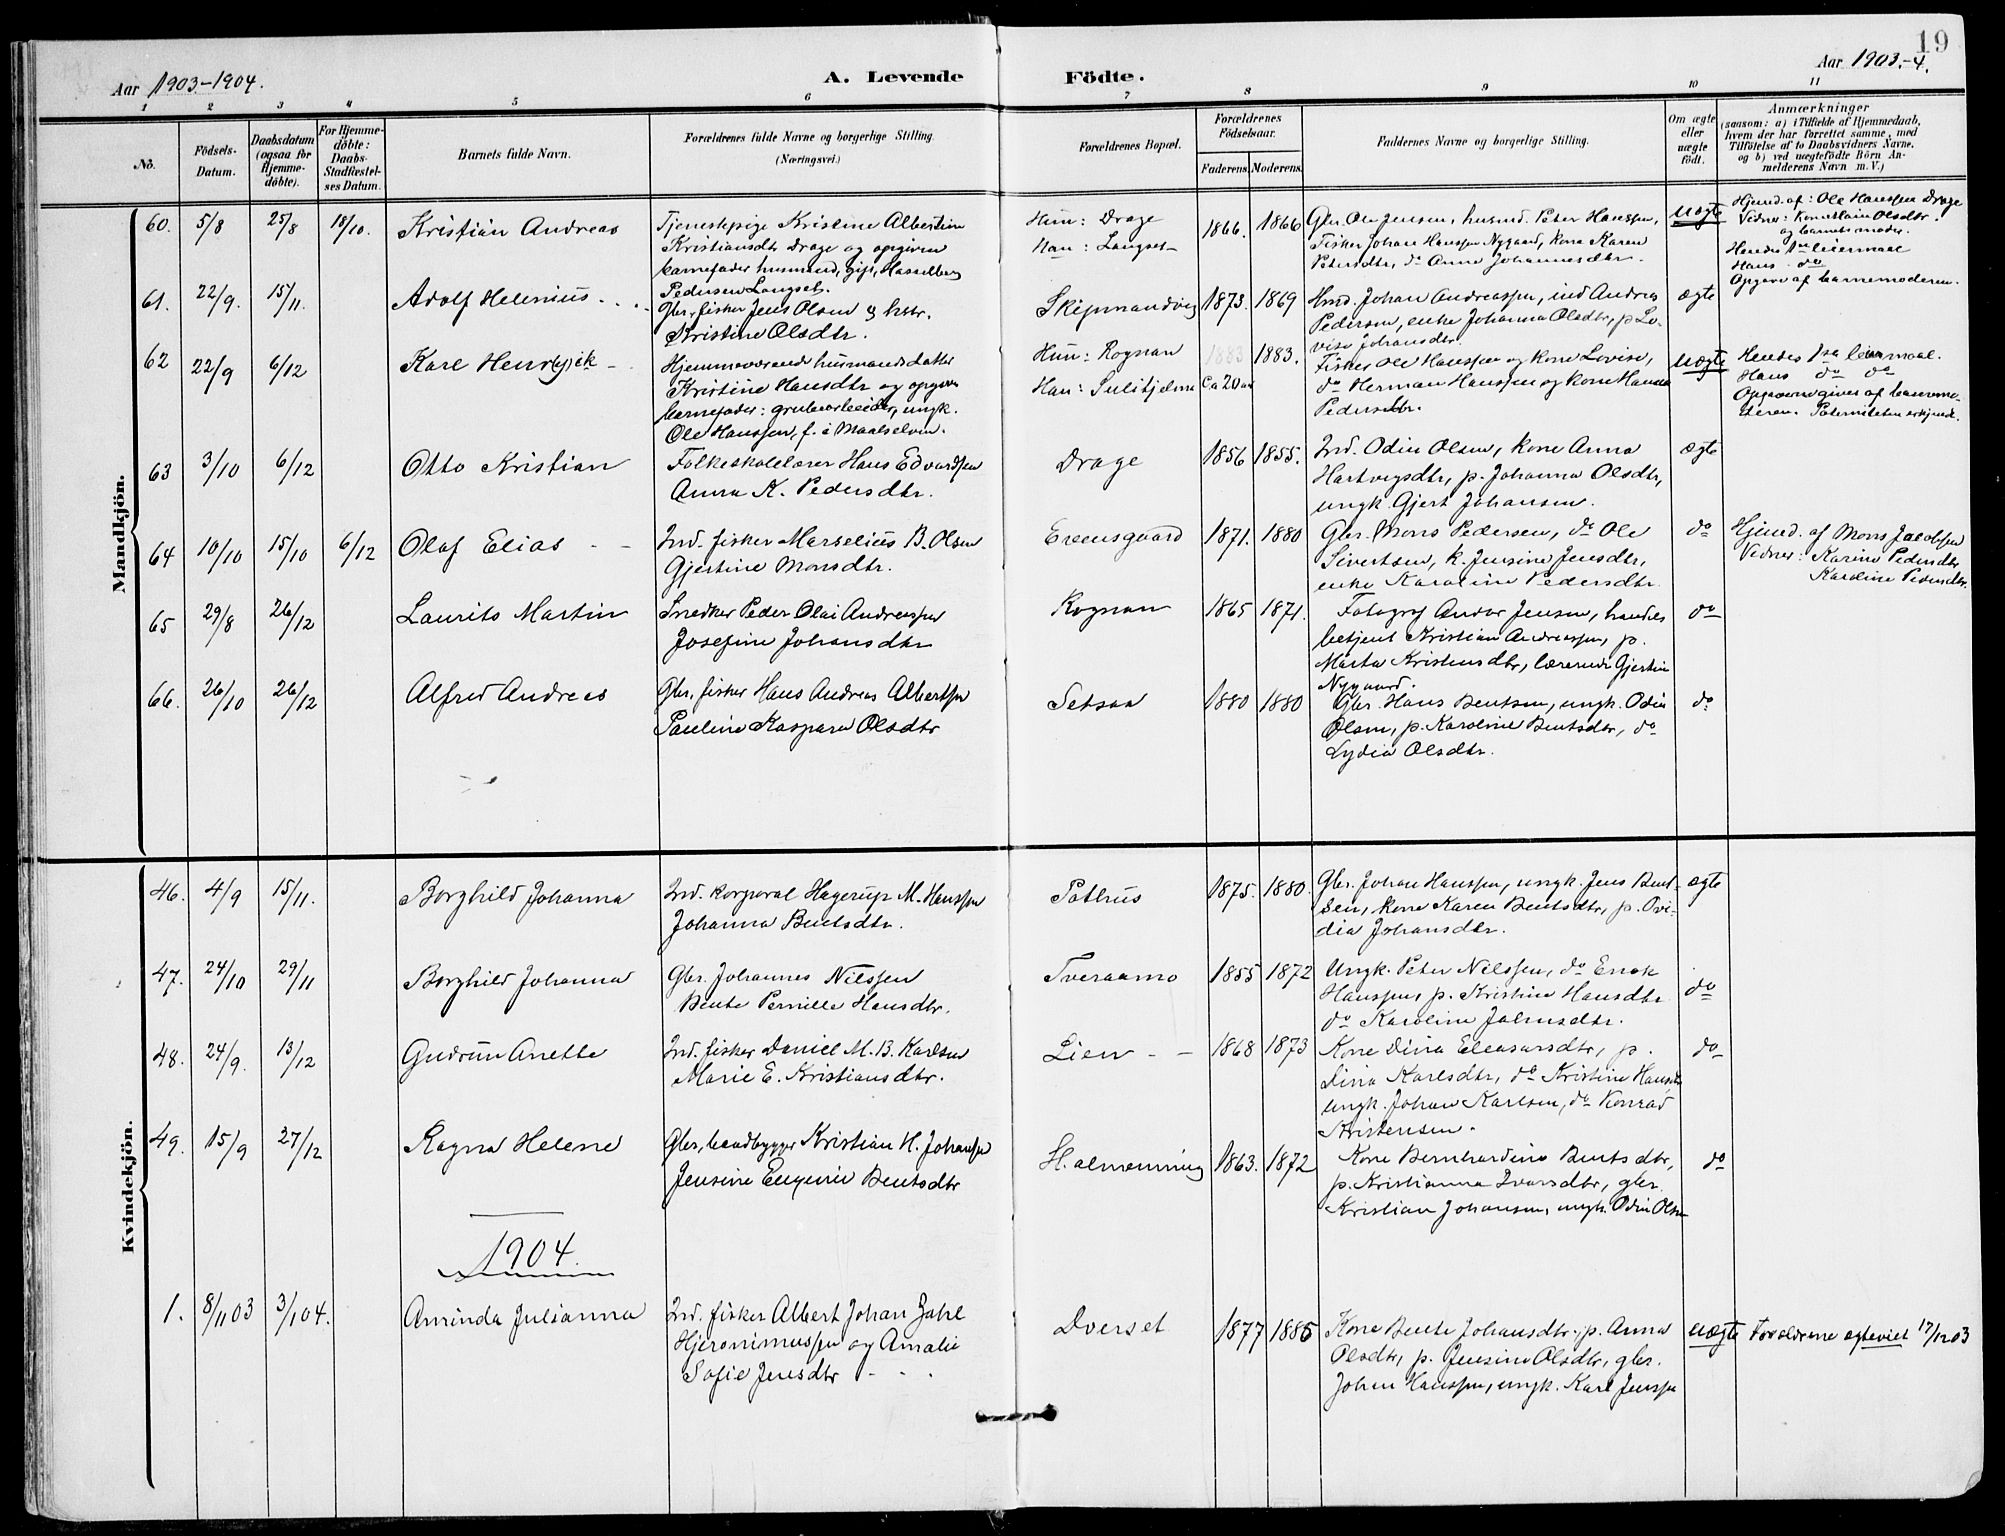 19
Aar 1903-1904.
A. Levende
Födte.
Aar 1903.-4.
1 2 3 4 5 6 7 8 9 10 11
No.
Födsels-Datum.
Daabsdatum (ogsaa for Hjemme-döbte).
For Hjemme-döbte: Daabs-Stadfæstel-ses Datum.
Barnets fulde Navn.
Forældrenes fulde Navne og borgerlige Stilling.
(Næringsvei.)
Forældrenes Bopæl.
Forældrenes Födselsaar.
Faderens. Moderens.
Faddernes Navne og borgerlige Stilling.
Om ægte eller uægte födt.
Anmærkninger
(saasom: a) i Tilfælde af Hjemmedaab,
hvem der har forrettet samme, med
Tilföielse af to Daabsvidners Navne,
og b) ved uægtefödte Börn An-
melderens Navn m. V.)
Mandkjön.
60. 5/8 25/8 18/10. Kristian Andreas
Tjenestepige Kristine Albertine
Kristiansdtr Drage og opgiven
barnefader husmand, gift, Hasselberg
Pedersen Langset.
Hun: Drage
Han: Langset
1866. 1866
Gbr. Ole Jensen, husmd. Peter Hanssen,
Fisker Johan Hanssen Nygaard, kone Karen
Petersdtr, do Anne Johannesdtr.
uægte
Hjmd. af: Ole Hanssen Drage
Vidner: Olsdtr.
og barnets moder.
Hendes 1ste leiermaal
Hans do
Opgave af barnemoderen.
61. 22/9. 15/11. Adolf Helenius
Gbr, fisker Jens Olsen og hstr.
Kristine Olsdtr.
Skipmandvig
1873. 1869
Hmd. Johan Andreassen, ind Andreas
Pedersen, enke Johanna Olsdtr, p Lo-
vise Johansdtr.
ægte
62 22/9 6/12 Karl Henry
Hjemmeværende husmandsdatter
Kristine Hansdtr og opgiven
barnefader: grubearbeider, ungk.
Ole Hanssen, f. i Maalselven.
Hun: Rognan
Han: Sulitjelma
1883. ca 20 aar
Fisker Ole Hanssen og kone Lovise,
do Herman Hanssen og kone Hanna
Pedersdtr.
uægte
Hendes 1ste leiermaal.
Hans do do
Opgaverne givet af barnemo-
deren. Paterniteten erkjendt.
63 3/10 6/12 Otto Kristian
Folkeskolelærer Hans Edvardsen
Anna K. Pedersdtr.
Drage
1856 1855.
Ind. Odin Olsen, kone Anna
Hartvigsdtr, p. Johanna Olsdtr,
ungk Gjert Johansen.
ægte
64 10/10 15/10 6/12 Olaf Elias
Ind. fisker Marselius B. Olsen
Gjertine Monsdtr.
Evensgaard
1871. 1880
Gbr. Mons Pedersen, do Ole
Sivertsen, k. Jensine Jensdtr,
enke Karoline Pedersdtr.
do
Hjmd. af Mons Jacobsen
Vidner: Karine Pedersdtr
Karoline Pedersdtr.
65 29/8 26/12 Laurits Martin
Snedker Peder Olai Andreassen
Josefine Johansdtr
Rognan
1865 1871.
Fotograf Andor Jensen, handels
betjent Kristian Andreassen, p.
Marta Kristensdtr, lærerinde Gjertine
Nygaard.
do
66. 26/10 26/12 Alfred Andreas
Gbr, fisker Hans Andreas Albertsen
Pauline Kaspara Olsdtr
Setsaa
1880 1880
Gbr. Hans Bentsen, ungk. Odin
Olsen, p. Karoline Bentsdtr, do
Lydia Olsdtr.
do
Kvindekjön.
46. 4/9 15/11. Borghild Johanna
Ind. korporal Hagerup M. Hanssen
Johanna Bentsdtr.
Pothus
1875. 1880.
Gbr. Johan Hanssen, ungk. Jens Bent-
sen, kone Karen Bentsdtr, p. Ovi-
dia Johansdtr.
ægte
47. 24/10 29/11 Borghild Johanna
Gbr. Johannes Nilssen
Bente Pernille Hansdtr.
Tveraamo
1855 1872
Ungk. Peter Nilssen, do Enok
Hanssen, p. Kristine Hansdtr
do Karoline Johnsdtr.
do
48. 24/9. 13/12 Gudrun Anette
Ind. fisker Daniel M. B. Karlsen
Marie E. Kristiansdtr.
Lien
1868 1873
Kone Dina Eleasarsdtr, p.
Dina Karlsdtr, do Kristine Hansdtr
ungk. Johan Karlsen, do Konrad
Kristensen.
do
49. 15/9 27/12 Ragna Helene
Gbr, baadbygger Kristian H. Johansen
Jensine Eugenie Bentsdtr
St. almenning
1863. 1872
Kone Bernhardine Bentsdtr,
p. Kristianna Ivarsdtr, gbr.
Kristian Johansen, ungk. Odin Olsen
do
1904.
1. 8/11 03 3/1 04. Aminda Julianna
Ind. fisker Albert Johan Zahl
Hjeronimussen og Amalie
Sofie Jensdtr
Dverset
1877 1885
Kone Bente Johansdtr, p. Anna
Olsdtr, p. Jensine Olsdtr, gbr.
Johan Hanssen, ungk. Karl Jenssen
uægte
Forældrene ægteviet 17/12 03